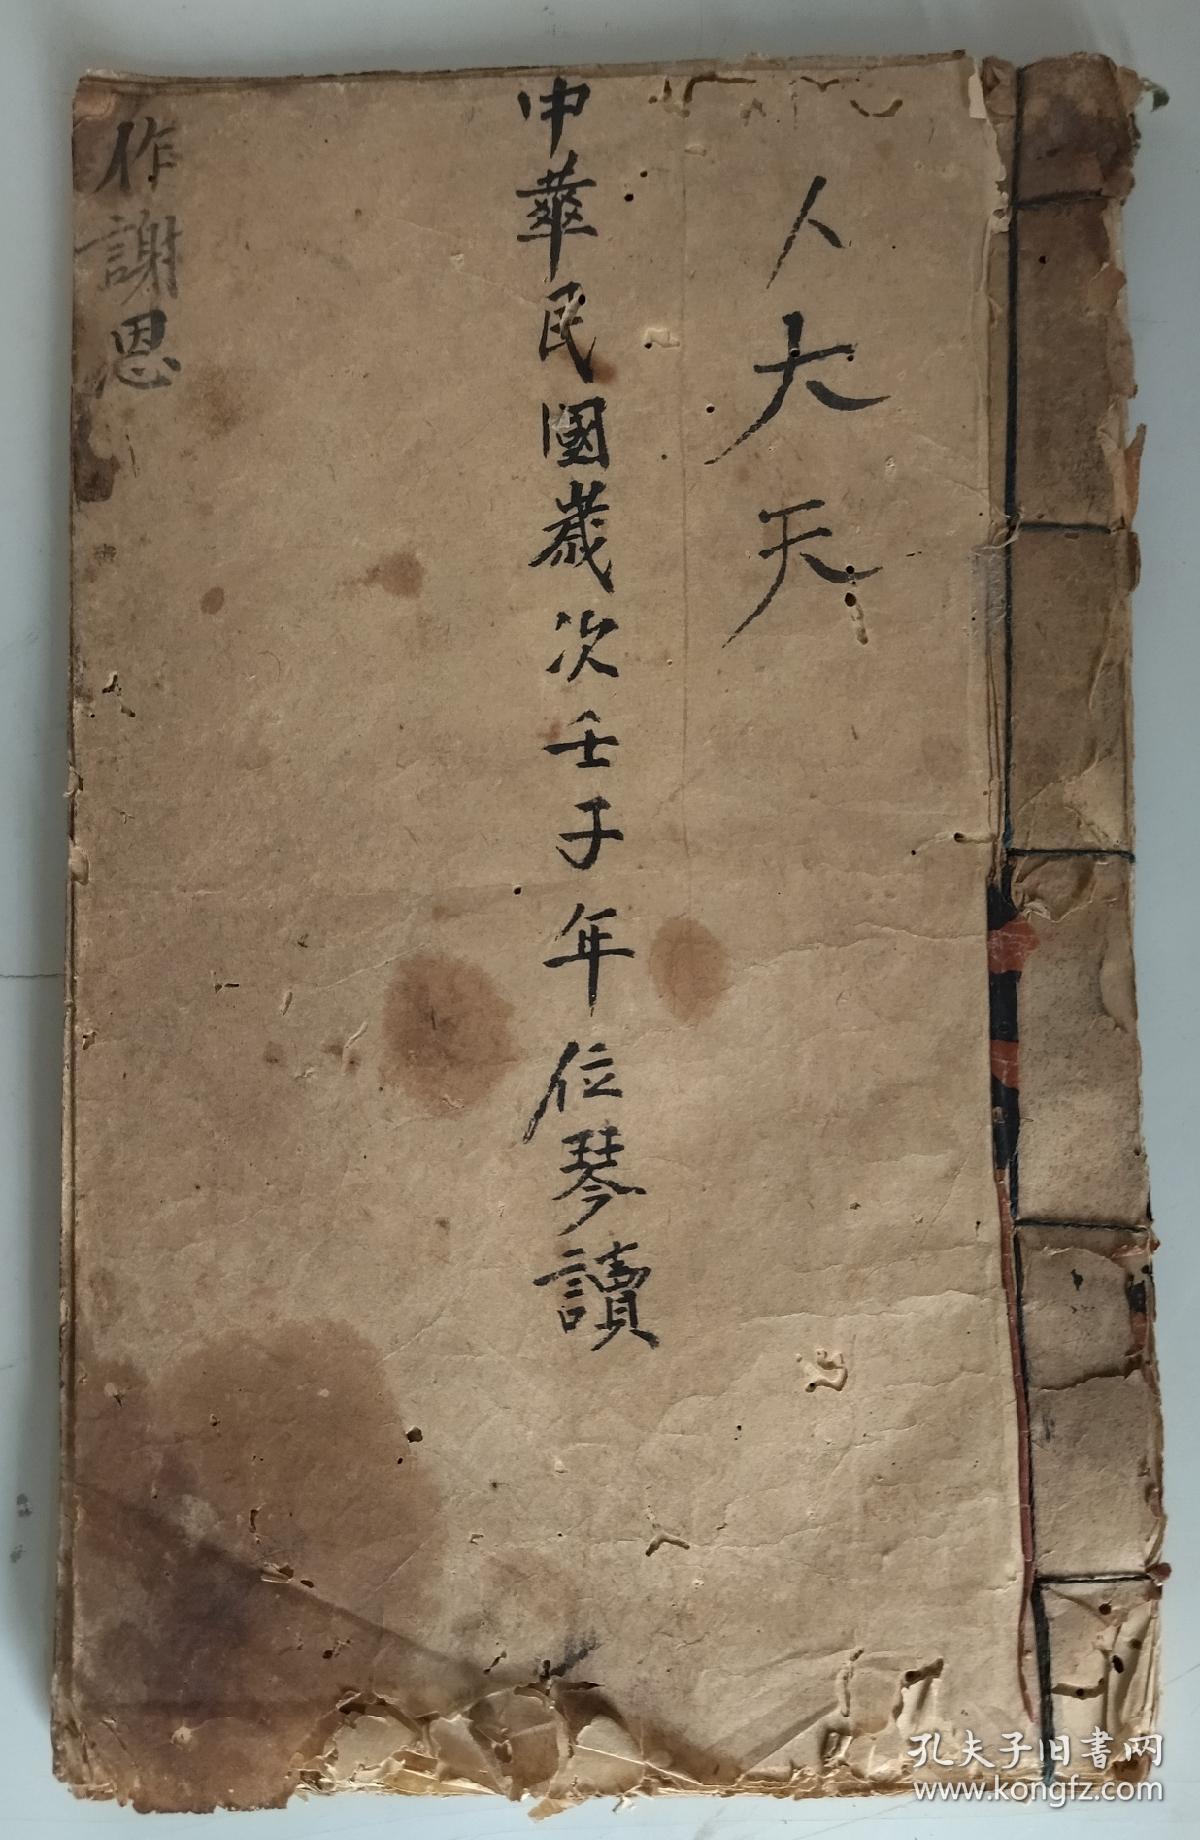 人大天
中華民國歲次壬子年位琴讀
作謝恩
孔夫子旧書网
www.kongfz.com